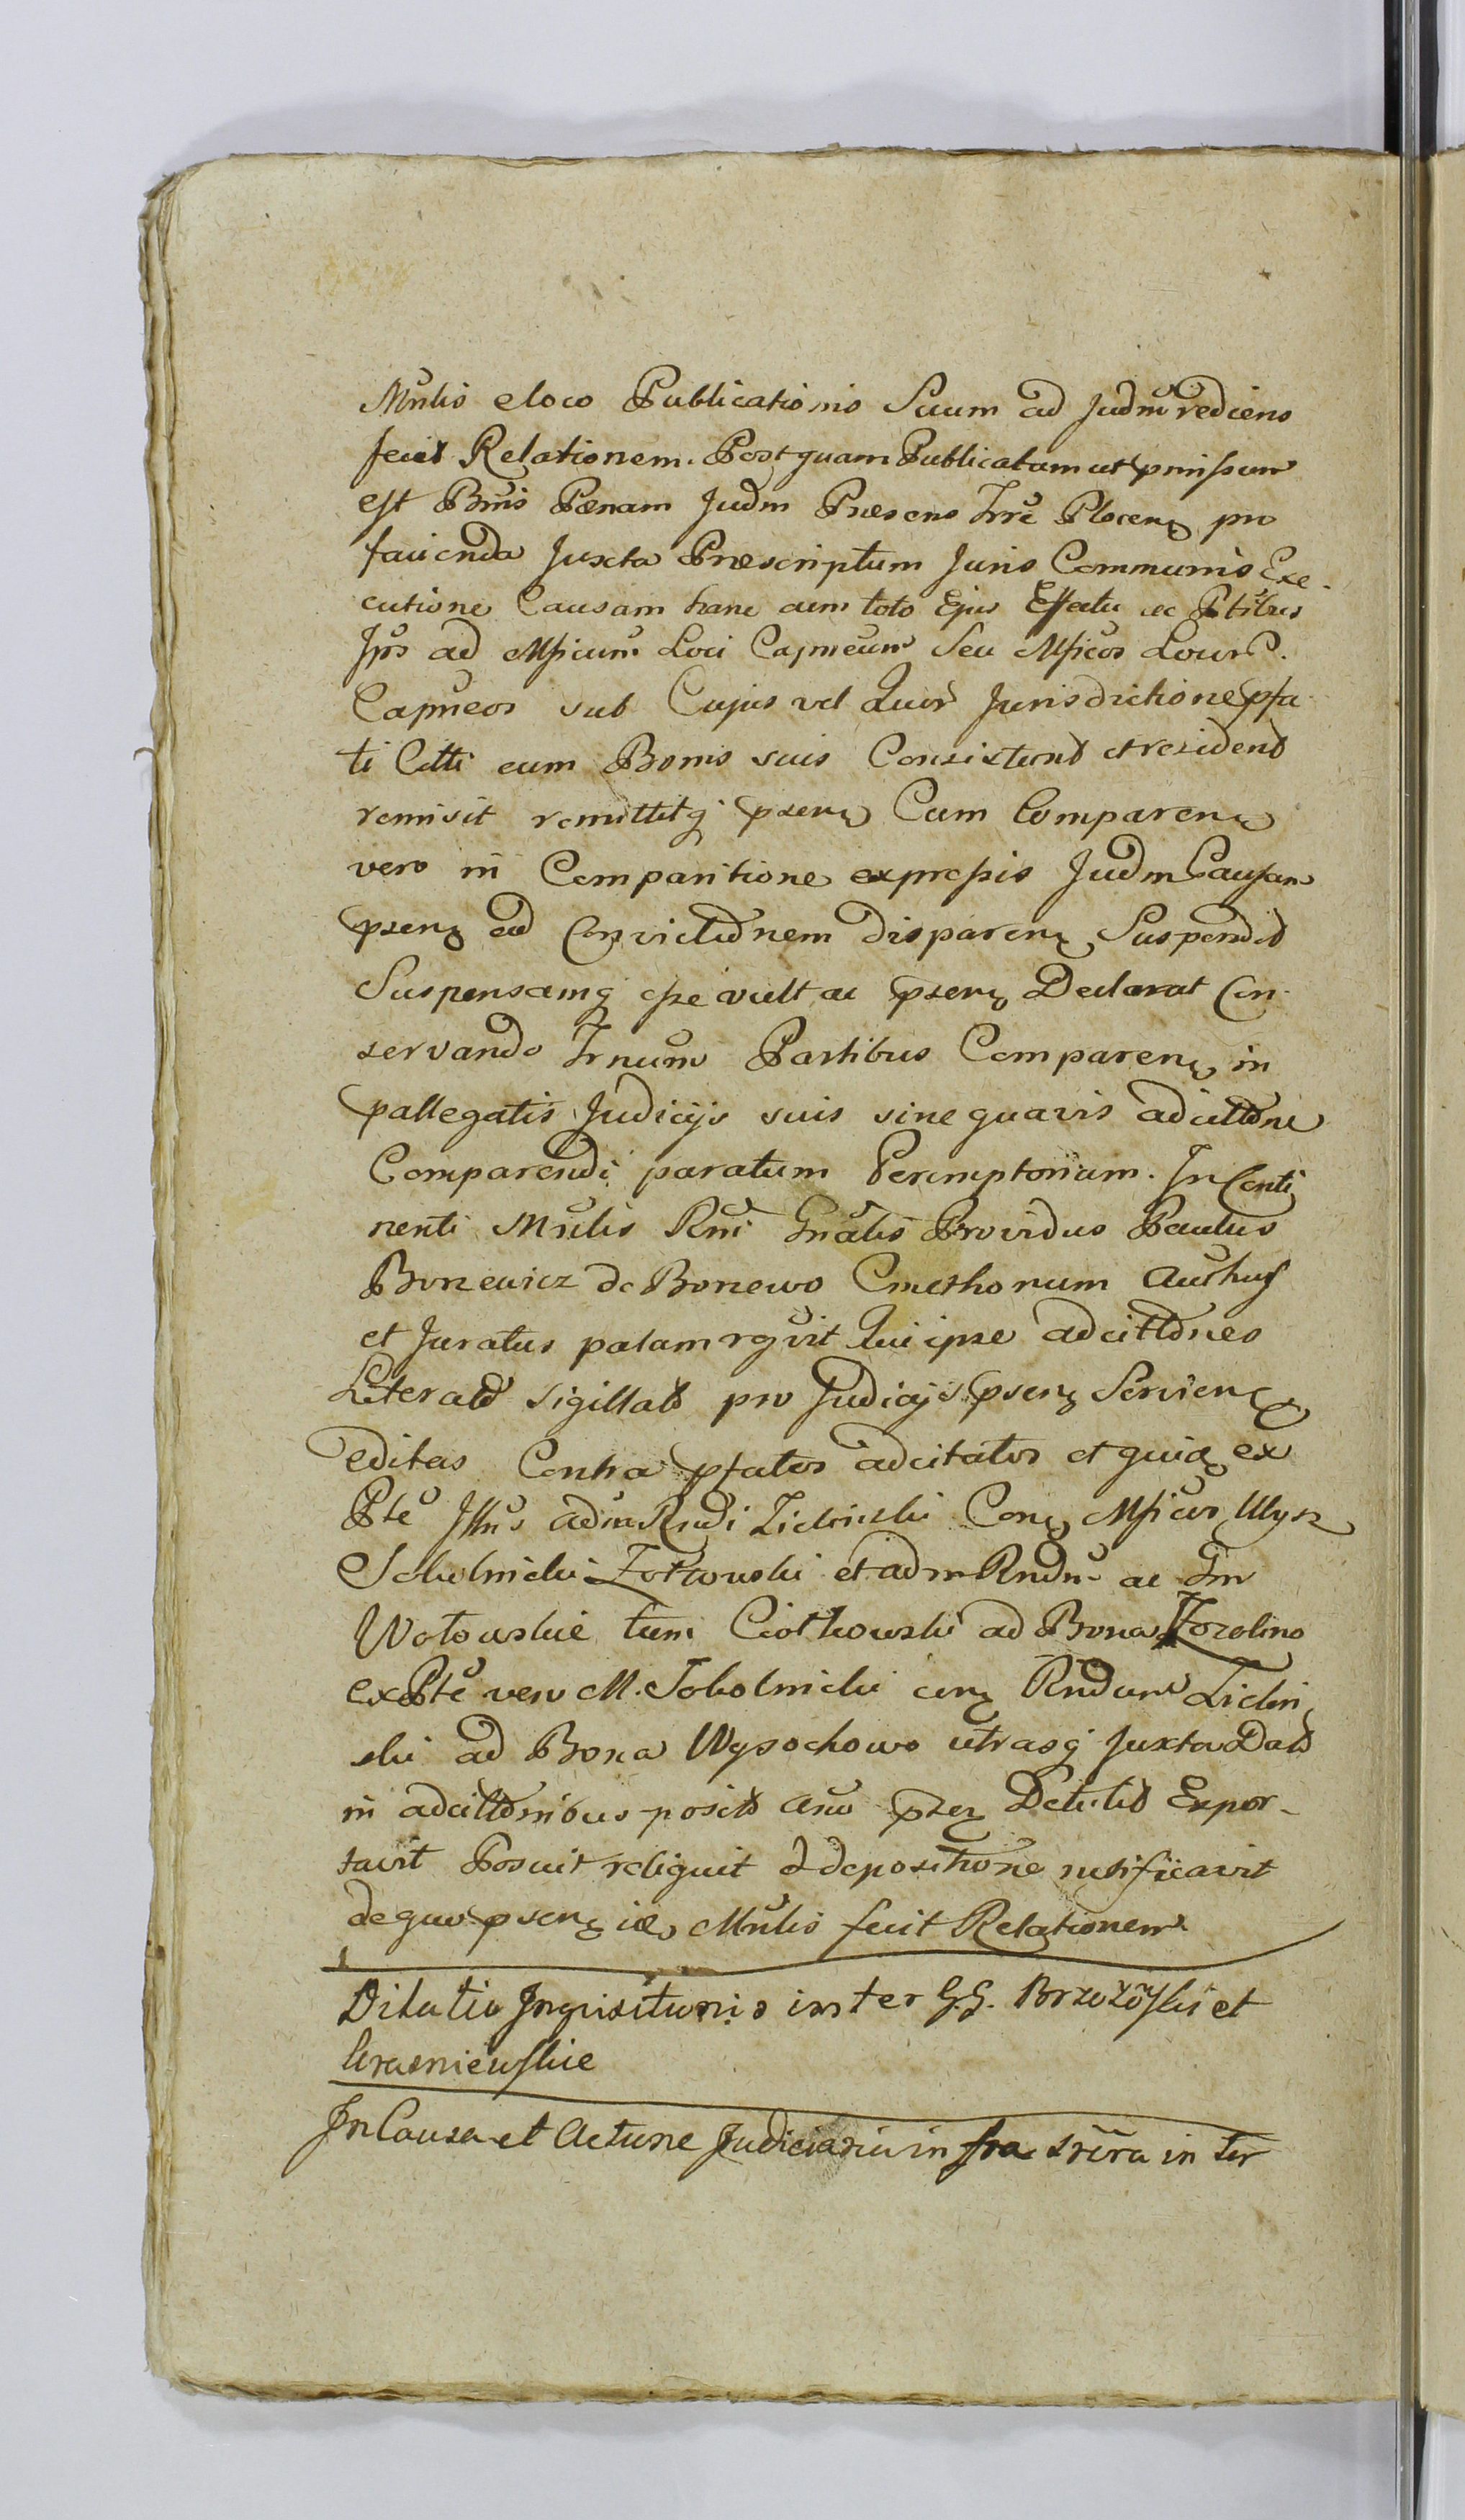 Mnlis e loco Publicationis Suum ad Judm rediens
fecit Relationem. Post quam Publicatam ut pmissum
est Bnis Pænam Judm Præsens Trre Plocen pro
facienda Juxta Præscriptum Juris Communis Exe-
cutione Causam hanc cum toto Ejus Effectu ac Ptibus
Jps ad Mficum Loci Capneum Seu Mficos Locor
Capneos sub Cujus vel Quor Jurisdictione pfa
ti Citti cum Bonis suis Consistunt et resident
remisit remittitq psen Cum Comparen
vero in Comparitione expressis Judm Causam
psen ad Convictionem disparen Suspendit
Suspensamq esse vult ac psen Declarat Con
servando Trnum Partibus Comparen in
pallegatis Judicijs suis sine quavis adcittne
Comparendi paratum Peremptorium. In Conti
nenti Mnlis Rni Gnalis Providus Paulus
Bonewicz de Bonewo Cmethonum Authus
et Juratus palam rgvit Qui ipse adcittnes
Literat Sigillat pro Judicijs psen Servien
editas Contra pfatos adcitatos et quid ex
Pte Illus admRndi Zielinski Con Mficos Wysz
Sobolnicki Zottowski et adm Rndu ac Gn
Wotowskie tum Ciotkowski ad Bona Kozolino
ex Pte vero M. Sobolnicki con Rndum Zielin
ski ad Bona Wysochowo utrasq Juxta Dat
in adcittnibus posit Anno psen Detulit Expor-
tavit Posuit reliquit et depositione notificavit
de quo psen ide Mnlis fecit Relationem
Dilatio Inquisitionis inter G.G. Brzozoskie et
Krasniewskie
In Causa et Actione Judiciaria infra Scra inter